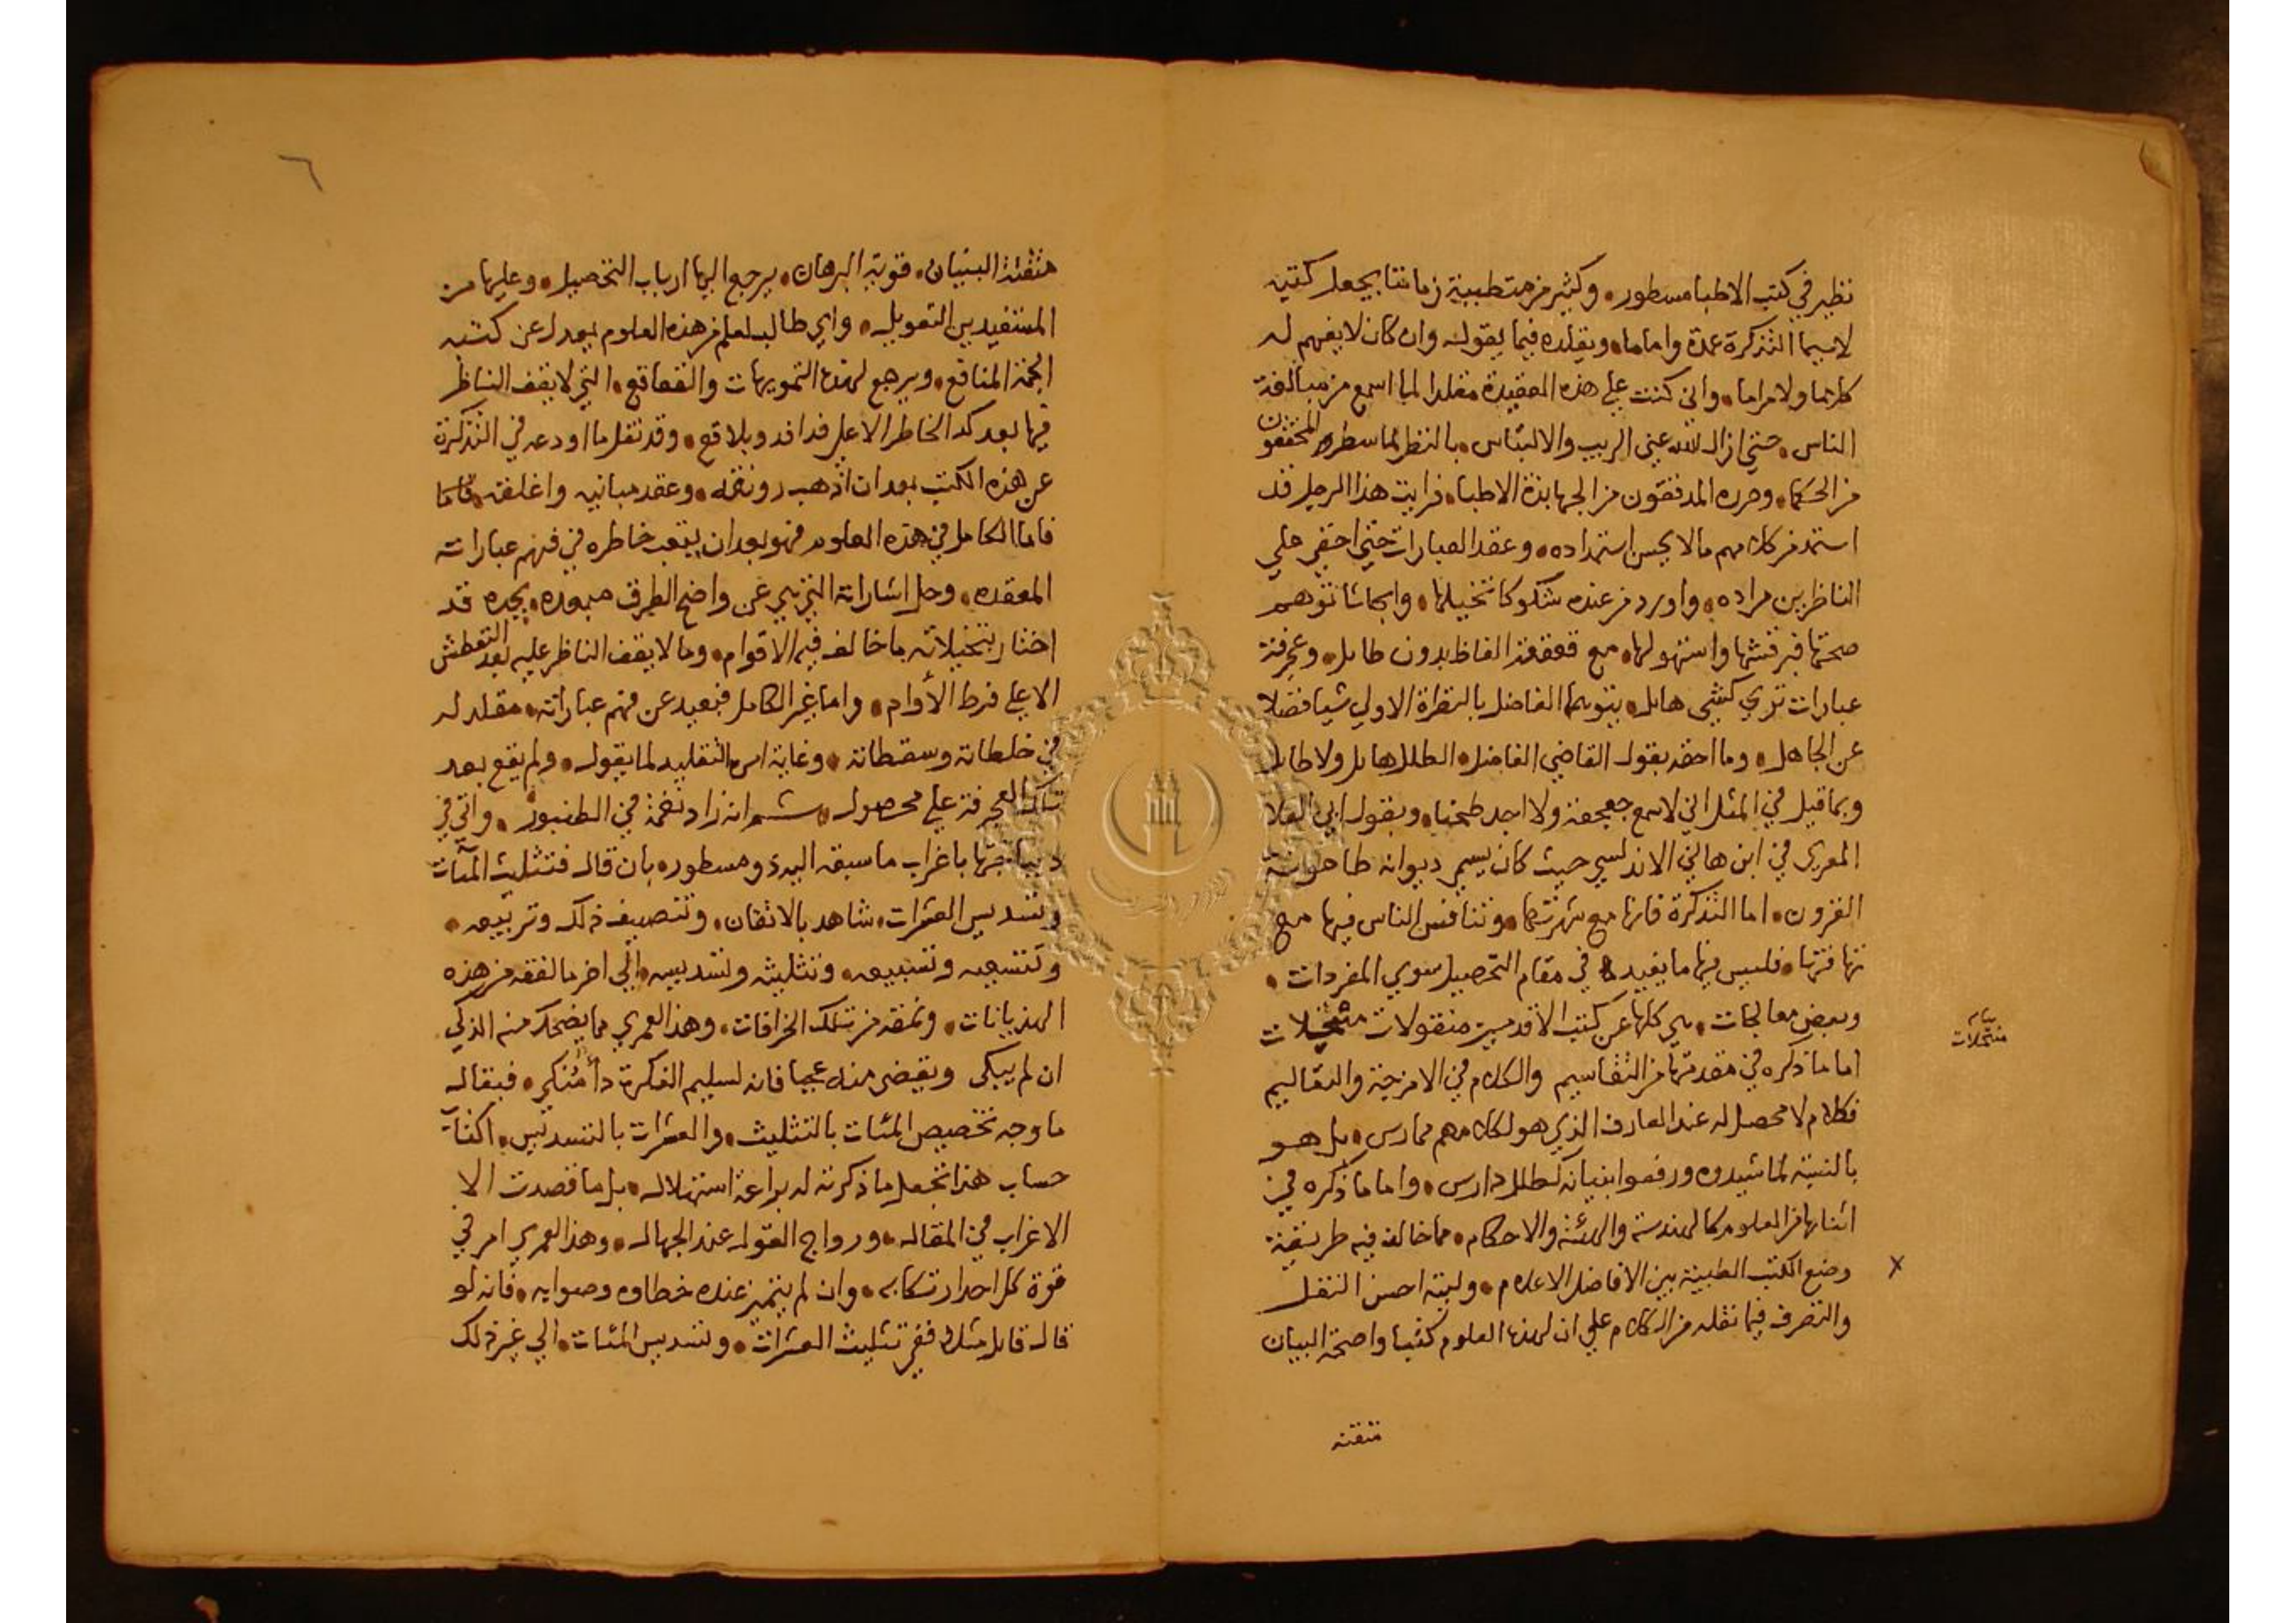 نظير في كتب الاطبا مسطور وكثير من متطببة زماننا يجعل كتبه
لاسيما التذكرة عمدة واماما ويقلده فيما يقوله وان كان لا يفهم له
كلاما ولا مراما واني كنت علي هذه العقيدة مقلدا لما اسمع من مبالغة
الناس حتي ازال الله عني الريب والالتباس بالنظر لما سطره المحققون
من الحكما وحرره المدققون من الجهابذة الاطبا فرايت هذا الرجل قد
استمد من كلامهم ما لا يحسن استمداده وعقد العبارات حتي اخفي علي
الناظرين مراده واورد من عنده شكوكا تخيلها وابحاثا توهم
صحتها واستهولها مع قعقعة الفاظ بدون طايل وعجرفة
عبارات تري كشي هايل يتوهمها الفاضل بالنظرة الاولي شيا فضلا
عن الجاهل وما احقه بقول القاضي الفاضل الطلل هايل ولا طايل
وبما قيل في المثل اني لاسمع جعجعة ولا اجد طحنا وبقول ابي العلا
المعري في ابن هاني الاندلسي حيث كان يسمي ديوانه طاحونة
القرون اما التذكرة فانها مع شهرتها وتنافس الناس فيها مع
تهافتها فليس فيها ما يفيد في مقام التحصيل سوي المفردات
وبعض معالجات هي كلها عن كتب الاقدمين منقولات منتحلات
بيان
منتحلات
اما ما ذكره في مقدمتها من التقاسيم والكلام في الامزجة والتعاليم
فكلام لا محصل له عند العارف الذي هو لكلامهم ممارس بل هو
بالنسبة لما شيدوه ورفعوا بنيانه كطلل دارس واما ما ذكره في
اثنايها من العلوم كالهندسة والهيئة والاحكام مما خالف فيه طريقة
وضع الكتب الطبية بين الافاضل الاعلام وليته احسن النقل
والتصرف فيما نقله من الكلام علي ان لهذه العلوم كتبا واضحة البيان
متقنة
٦
متقنة البنيان قوية البرهان يرجع اليها ارباب التحصيل وعليها من
المستفيدين التعويل واي طالب لعلم من هذه العلوم يعدل عن كتبه
الجمة المنافع ويرجع لهذه التمويهات والقعاقع التي لا يقف الناظر
فيها بعد كد الخاطر الا علي فدافد وبلاقع وقد نقل ما اودعه في التذكرة
عن هذه الكتب بعد ان اذهب رونقه وعقد مبانيه واغلقه فاما
فاما الكامل في هذه العلوم فهو بعد ان يتعب خاطره في فهم عباراته
المعقده وحل اشاراته التي هي عن واضح الطرق مبعده يجده قد
اختار بتخيلاته ما خالف فيه الاقوام وما لا يقف الناظر عليه بعد التعطش
الا علي فرط الأوام واما غير الكامل فبعيد عن فهم عباراته مقلد له
في خلطاته وسقطاته وغاية امره التقليد لما يقول ولم يقع بعد
تلك العجرفة علي محصول ثم انه زاد نغمة في الطنبور واتي في
ديباجتها باغراب ما سبقه اليه ذو مسطوره بان قال فتثليث المآت
وتسديس العشرات شاهد بالاتقان وتنصيف ذلك وتربيعه
وتتسعيه وتسبيعه وتثليثه وتسديسه الي اخر ما لفقه من هذه
الهذيانات ونمقه من تلك الخرافات وهذا لعمري مما يضحك منه الذكي
ان لم يبكي ويقضي منه عجبا فانه لسليم الفكرة دأ منكي فيقال له
ما وجه تخصيص المئات بالتثليث والعشرات بالتسديس اكنت
حساب هذا تجعل ما ذكرته له براعة استهلال بل ما قصدت الا
الاغراب في المقاله ورواج القول عند الجهاله وهذا لعمري امر في
قوة كل احد ارتكابه وان لم يتميز عنده خطاوه وصوابه فانه لو
قال قايل مثلا ففي تثليث العشرات وتسديس المئات الي غير ذلك